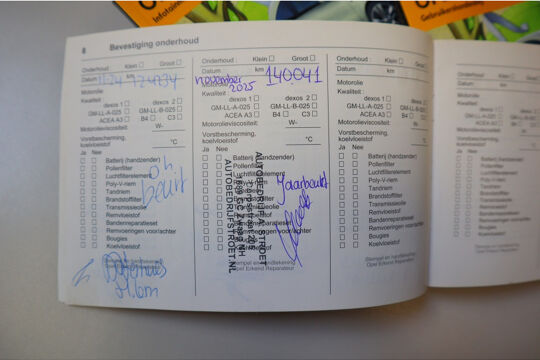 Infotainment
Gebruikershandleiding
8 Bevestiging onderhoud
Onderhoud : Klein Groot
Datum 11-24 124934 km
Motorolie
Kwaliteit :
dexos 1 dexos 2
GM-LL-A-025 GM-LL-B-025
ACEA A3 B4 C3
Motorolieviscositeit: W-
Vorstbescherming, koelvloeistof °C
Ja Nee
Batterij (handzender)
Pollenfilter
Luchtfilterelement
Poly-V-riem
Tandriem
Brandstoffilter
Transmissieolie
Remvloeistof
Bandenreparatieset
Remvoeringen voor/achter
Bougies
Koelvloeistof
beurt
Onderhoud : Klein Groot
Datum november 2025 km 140041
Motorolie
Kwaliteit :
dexos 1 dexos 2
GM-LL-A-025 GM-LL-B-025
ACEA A3 B4 C3
Motorolieviscositeit: W-
Vorstbescherming, koelvloeistof °C
Ja Nee
Batterij (handzender)
Pollenfilter
Luchtfilterelement
Poly-V-riem
Tandriem
Brandstoffilter
Transmissieolie
Remvloeistof
Bandenreparatieset
Remvoeringen voor/achter
Bougies
Koelvloeistof
Jaarbeurt
AUTOBEDRIJF STROET
AUTOBEDRIJFSTROET.NL
Opel Erkend Reparateur
Onderhoud : Klein Groot
Datum km
Motorolie
Kwaliteit :
dexos 1 dexos 2
GM-LL-A-025 GM-LL-B-025
ACEA A3 B4 C3
Motorolieviscositeit: W-
Vorstbescherming, koelvloeistof °C
Ja Nee
Batterij (handzender)
Pollenfilter
Luchtfilterelement
Poly-V-riem
Tandriem
Brandstoffilter
Transmissieolie
Remvloeistof
Bandenreparatieset
Remvoeringen voor/achter
Bougies
Koelvloeistof
Stempel en handtekening
Opel Erkend Reparateur